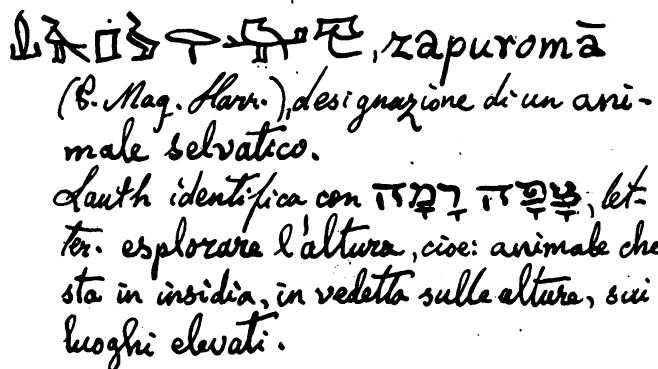 , zapuromā
(P. Mag. Harr.), designazione di un ani-
male selvatico.
Lauth identifica con צָפָה רָמָה, let-
ter. esplorare l'altura, cioe: animale che
sta in insidia, in vedetta sulle alture, sui
luoghi elevati.